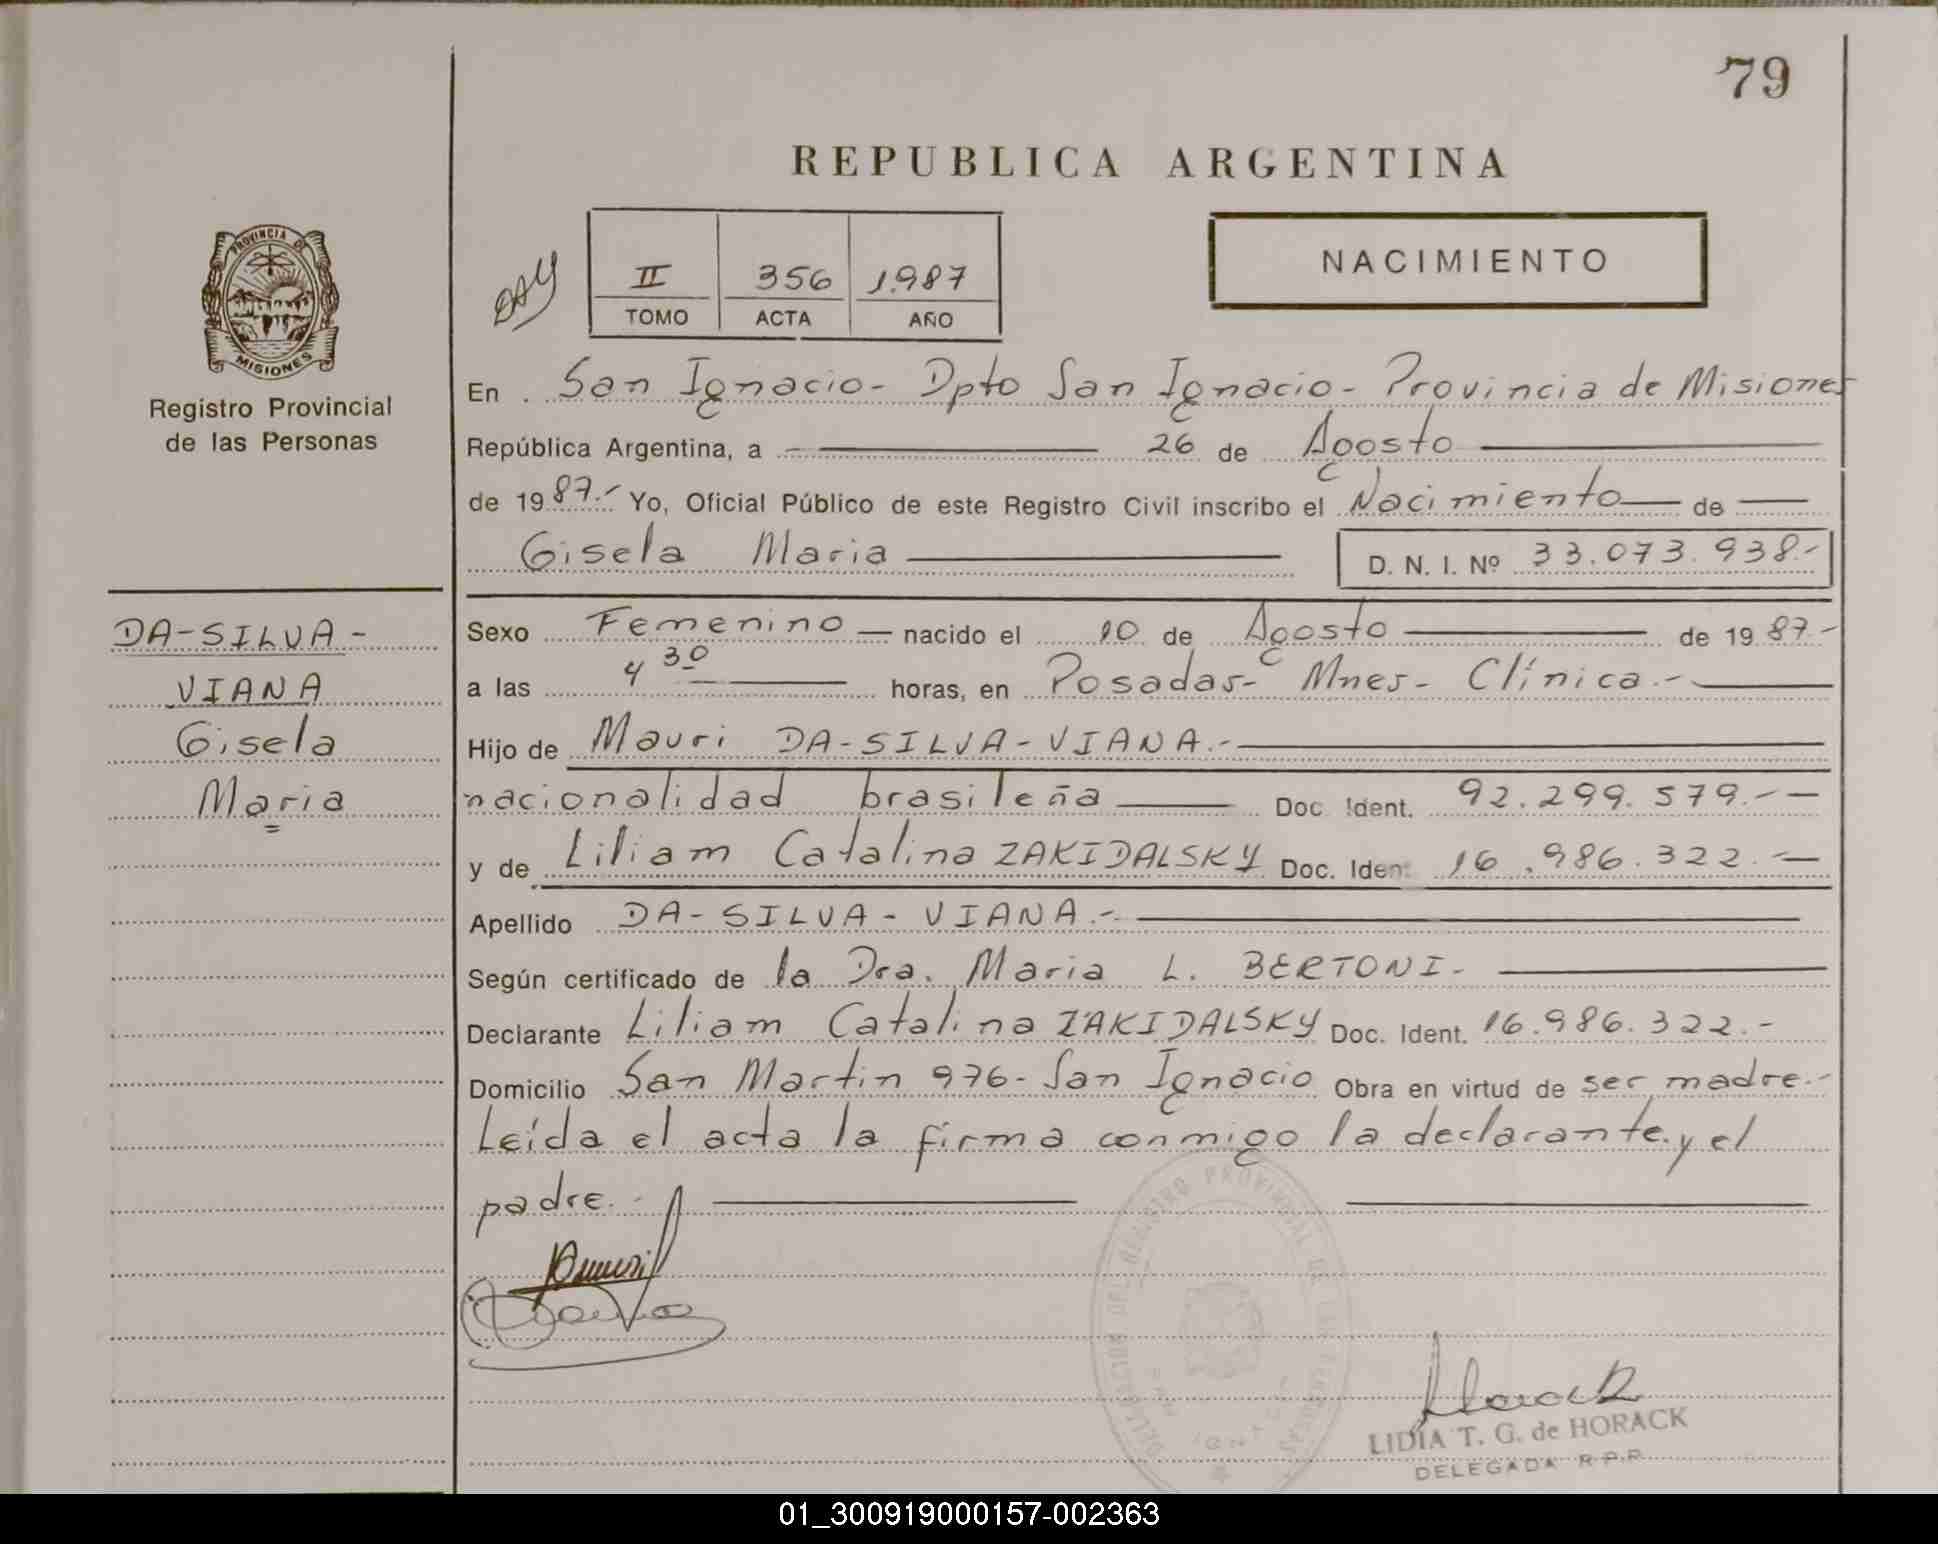 79
REPUBLICA ARGENTINA
PROVINCIA DE
MISIONES
Registro Provincial
de las Personas
II 356 1.987
TOMO ACTA AÑO
NACIMIENTO
En San Ignacio- Dpto San Ignacio- Provincia de Misiones
República Argentina, a 26 de Agosto
de 1987.- Yo, Oficial Público de este Registro Civil inscribo el Nacimiento de
Gisela Maria D. N. I. Nº 33.073.938.-
DA-SILVA-
VIANA
Gisela
Maria
Sexo Femenino nacido el 10 de Agosto de 1987.-
a las 4 30 horas, en Posadas- Mnes- Clínica.-
Hijo de Mauri DA-SILVA-VIANA.-
nacionalidad brasileña Doc. Ident. 92.299.579.-
y de Liliam Catalina ZAKIDALSKY Doc. Ident 16.986.322.-
Apellido DA-SILVA-VIANA.-
Según certificado de la Dra. Maria L. BERTONI-
Declarante Liliam Catalina ZAKIDALSKY Doc. Ident. 16.986.322.-
Domicilio San Martin 976- San Ignacio Obra en virtud de ser madre.-
Leída el acta la firma conmigo la declarante.y el
padre.-
DELEGACION DEL REGISTRO PROVINCIAL DE LAS PERSONAS
SAN IGNACIO
Horack
LIDIA T. G. de HORACK
DELEGADA R.P.P.
01_300919000157-002363